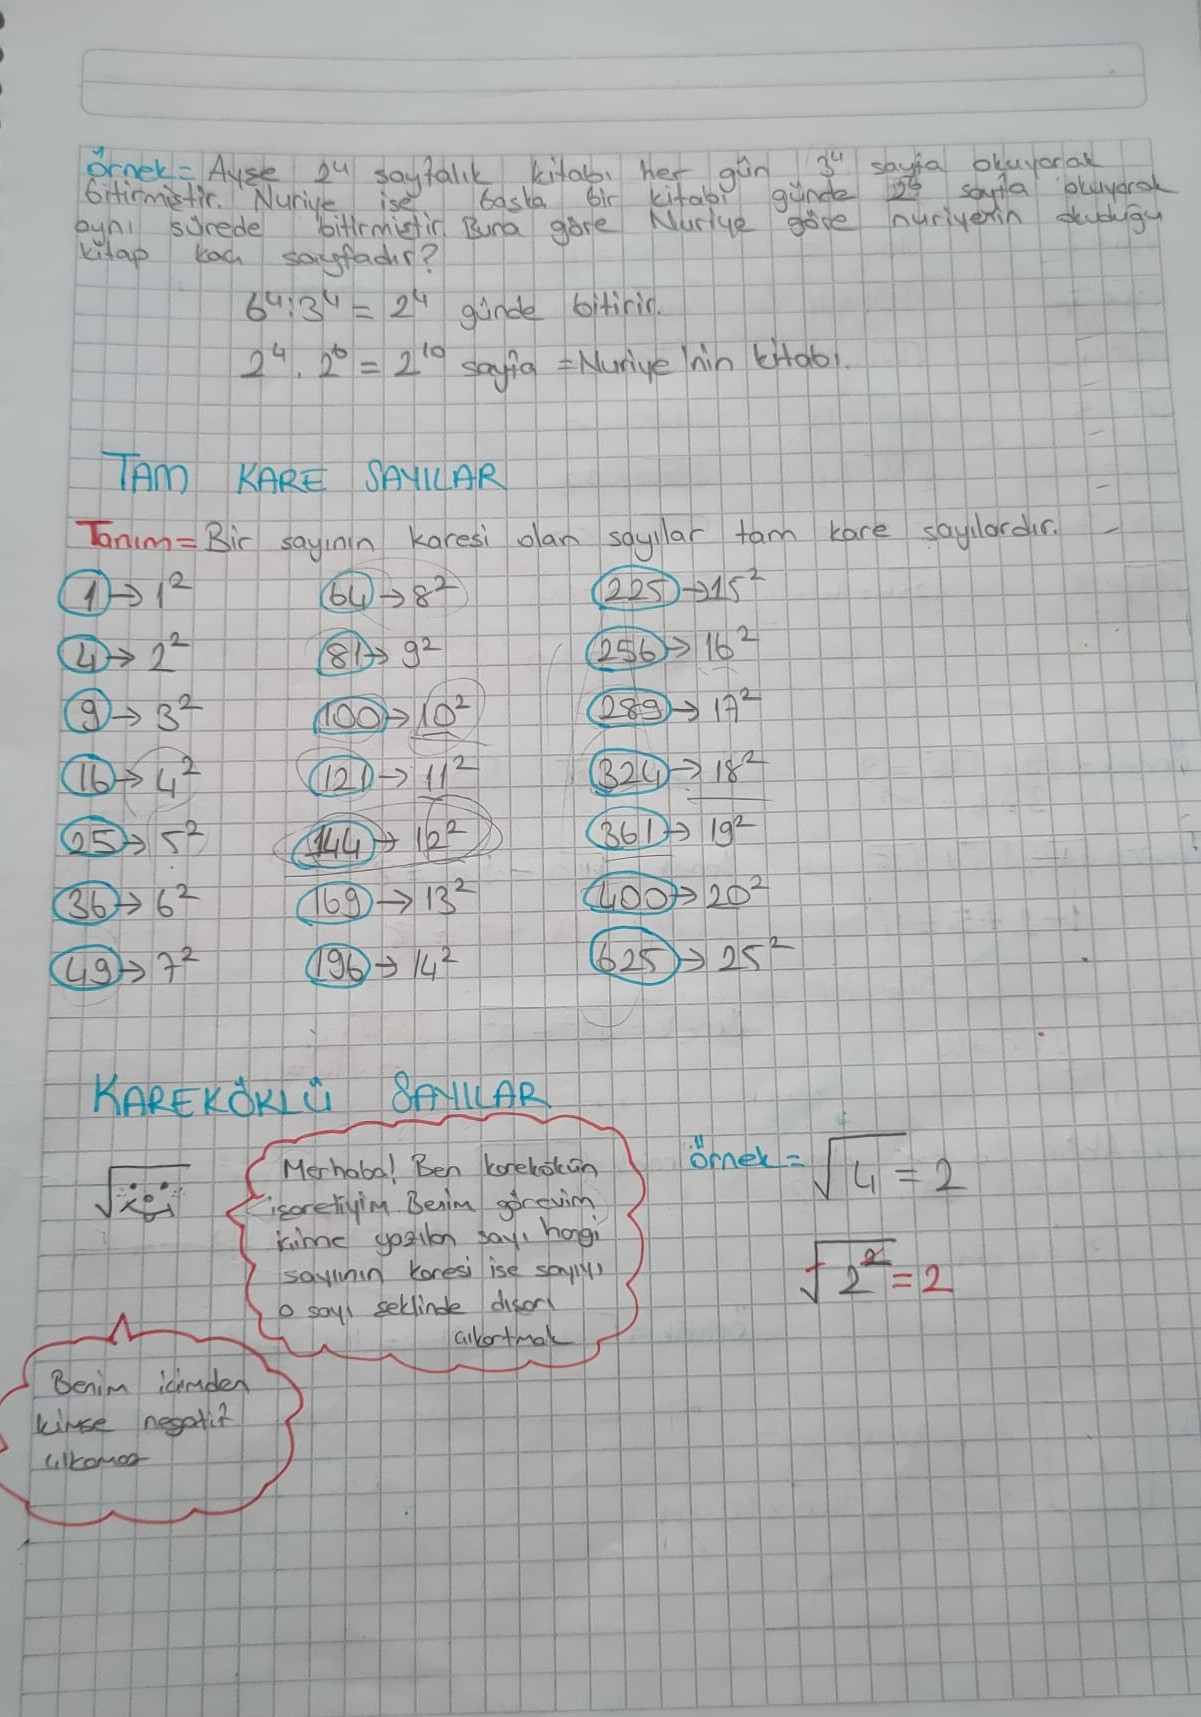 örnek= Ayşe 2⁴ sayfalık kitabı her gün 3⁴ sayfa okuyarak
bitirmiştir. Nuriye ise başka bir kitabı günde 2⁶ sayfa okuyarak
aynı sürede bitirmiştir. Buna göre Nuriye göre nuriyenin okuduğu
kitap kaç sayfadır?
6⁴:3⁴ = 2⁴ günde bitirir.
2⁴ . 2⁶ = 2¹⁰ sayfa = Nuriye'nin kitabı.
TAM KARE SAYILAR
Tanım= Bir sayının karesi olan sayılar tam kare sayılardır.
1 → 1² 64 → 8² 225 → 15²
4 → 2² 81 → 9² 256 → 16²
9 → 3² 100 → 10² 289 → 17²
16 → 4² 121 → 11² 324 → 18²
25 → 5² 144 → 12² 361 → 19²
36 → 6² 169 → 13² 400 → 20²
49 → 7² 196 → 14² 625 → 25²
KAREKÖKLÜ SAYILAR
Merhaba! Ben karekökün
işaretiyim. Benim görevim
içime yazılan sayı hangi
sayının karesi ise sayıyı
o sayı şeklinde dışarı
çıkartmak
örnek = √4 = 2
√2² = 2
Benim içimden
kimse negatif
çıkamaz